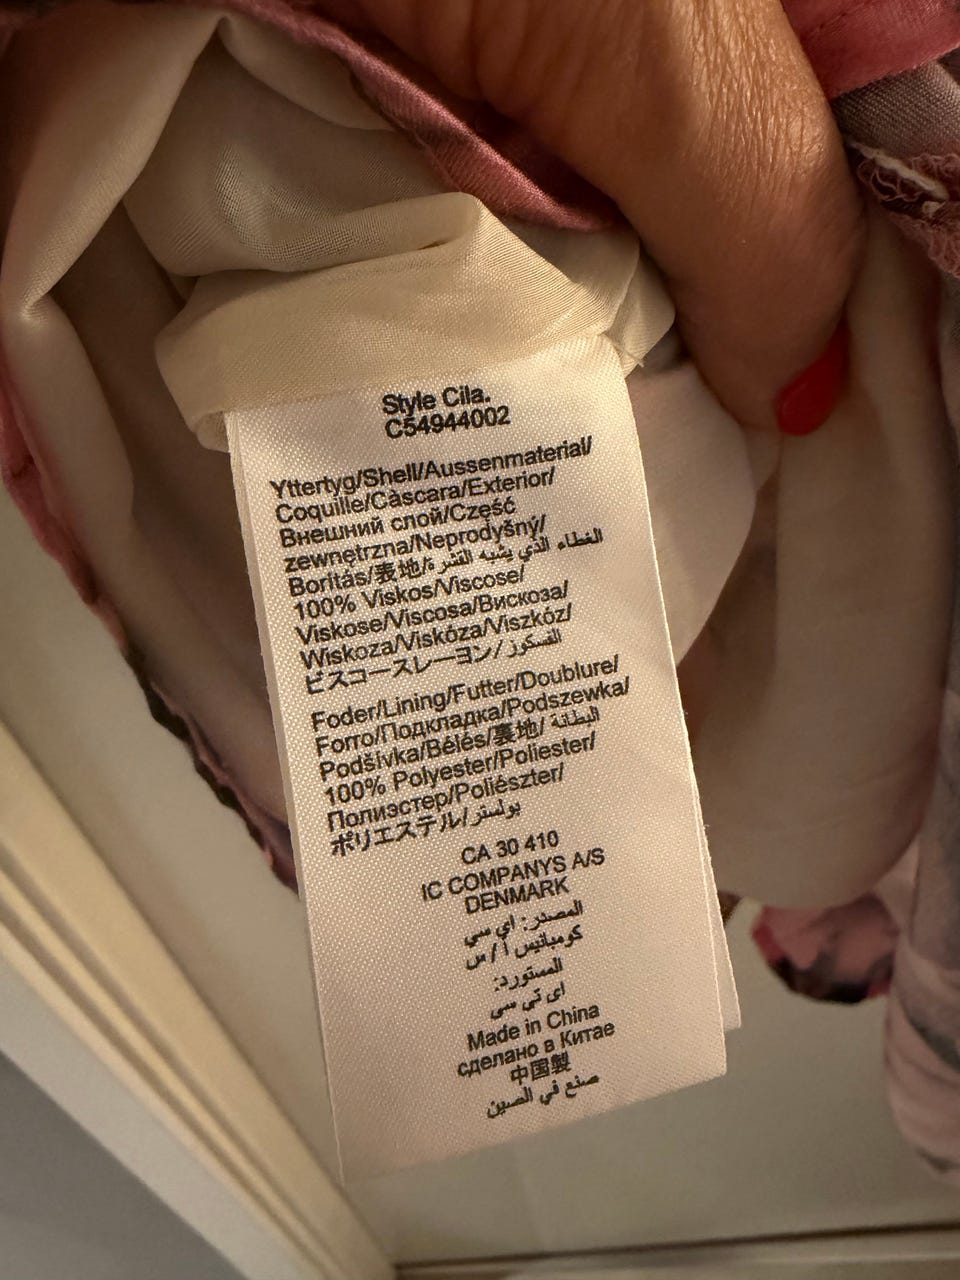 Style Cila.
C54944002
Yttertyg/Shell/Aussenmaterial/
Coquille/Càscara/Exterior/
Внешний слой/Część
zewnętrzna/Neprodyšný/
Borítás/表地/الغطاء الذي يشبه القشرة
100% Viskos/Viscose/
Viskose/Viscosa/Вискоза/
Wiskoza/Viskóza/Viszkóz/
ビスコースレーヨン/الفسكوز
Foder/Lining/Futter/Doublure/
Forro/Подкладка/Podszewka/
Podšívka/Bélés/裏地/البطانة
100% Polyester/Poliester/
Полиэстер/Poliészter/
ポリエステル/بولستر
CA 30 410
IC COMPANYS A/S
DENMARK
المصدر: اي سي
كومبانيس أ / س
المستورد:
اى تى سى
Made in China
сделано в Китае
中国製
صنع في الصين